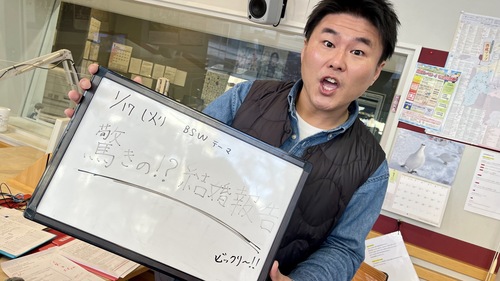 1/17 (火) BSW テーマ
驚きの!? 結婚報告
ビックリ〜!!